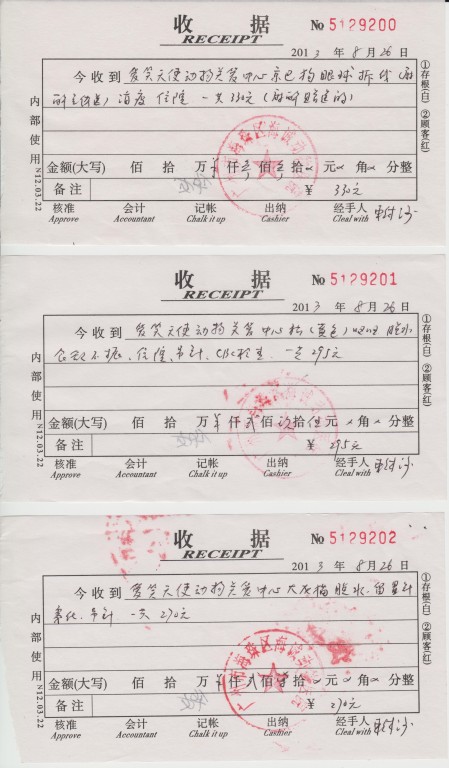 收 据
RECEIPT
No 5129200
2013 年 8 月 26 日
今收到 爱笑天使动物关爱中心京巴狗眼球拆线(麻
一共330元
金额(大写) 佰 拾 万 仟叁佰叁拾 元 角 分整
备注 ¥ 330元
核准 会计 记帐 出纳 经手人
Approve Accountant Chalk it up Cashier Cleal with
内部使用 N12.03.22
①存根(白) ②顾客(红)
收 据
RECEIPT
No 5129201
2013 年 8 月 26 日
今收到 爱笑天使动物关爱中心 (黄色) 脱水
住院、吊针、CBC检查 一共295元
金额(大写) 佰 拾 万 仟贰佰玖拾伍元 角 分整
备注 ¥ 295元
核准 会计 记帐 出纳 经手人
Approve Accountant Chalk it up Cashier Cleal with
内部使用 N12.03.22
①存根(白) ②顾客(红)
收 据
RECEIPT
No 5129202
2013 年 8 月 26 日
今收到 爱笑天使动物关爱中心 猫脱水、留置针
吊针 一共270元
金额(大写) 佰 拾 万 仟贰佰 拾 元 角 分整
备注 ¥ 270元
核准 会计 记帐 出纳 经手人
Approve Accountant Chalk it up Cashier Cleal with
内部使用 N12.03.22
①存根(白) ②顾客(红)